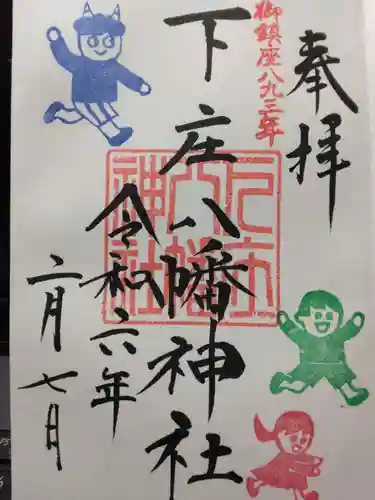 奉拝
御鎮座八九三年
下庄八幡神社
下庄八幡神社
令和六年
二月七日